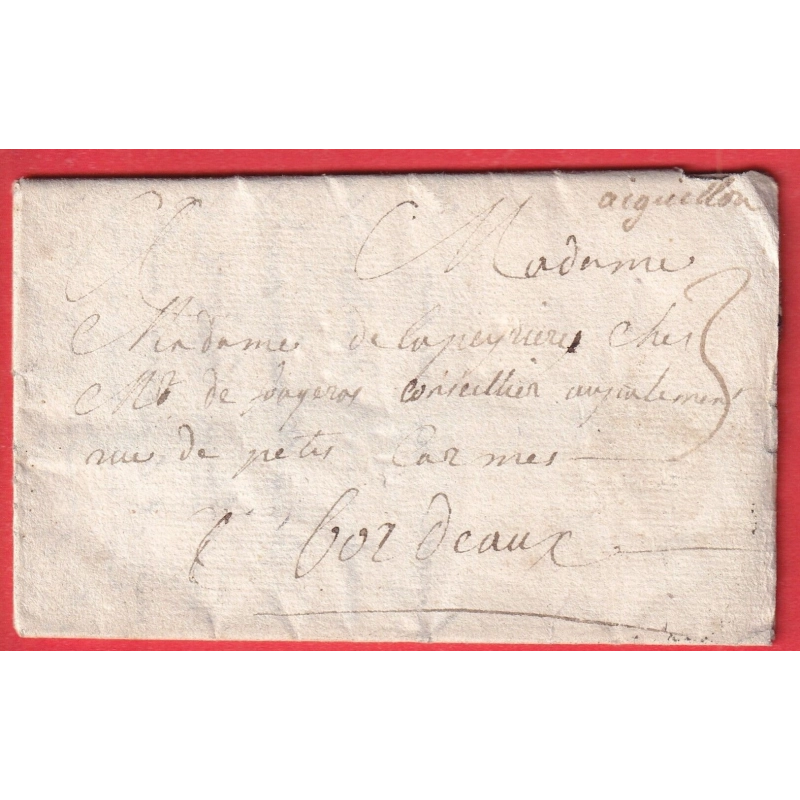 aiguillon
Madame
3
Madame de lapeyriere ches
Mr de conseillier auparlement
rue de petis Carmes
a bordeaux